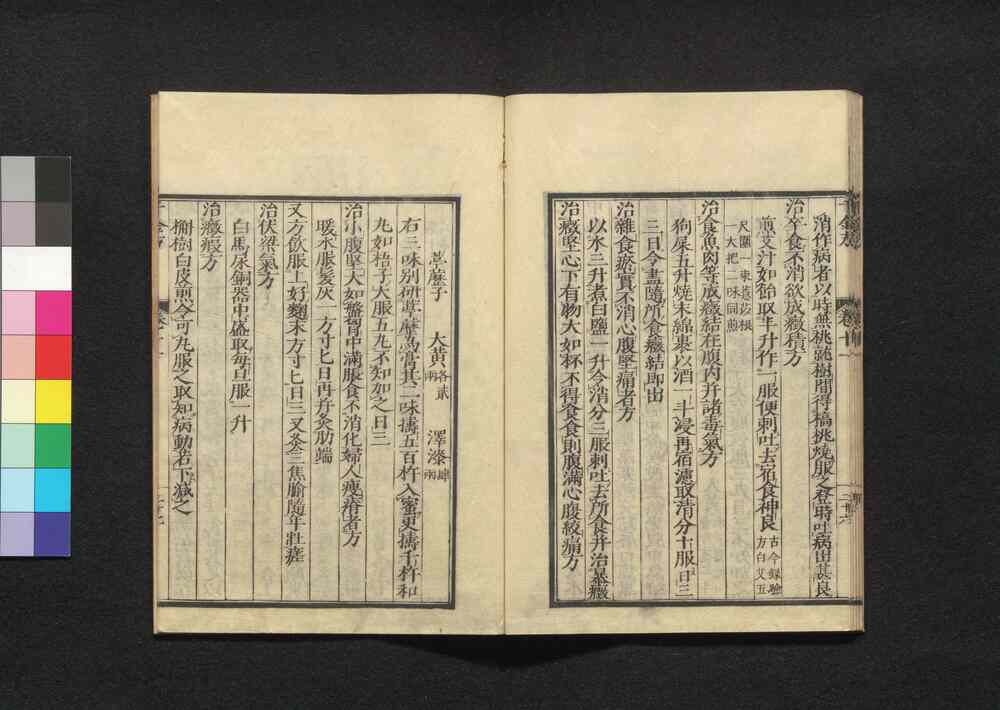 消作病者以時無桃就樹間得槁桃燒服之登時吐病出甚良
治卒食不消欲成癥積方
煎艾汁如飴取半升作一服便刺吐去宿食神良古今錄驗方白艾五
尺圍一束薏苡根一大把二味同煎
治食魚肉等成癥結在腹內幷諸毒氣方
狗屎五升燒末綿裹以酒一斗浸再宿濾取清分十服日三
三日令盡隨所食癥結即出
治雜食瘀實不消心腹堅痛者方
以水三升煮白鹽一升令消分三服刺吐去所食幷治暴癥
治癥堅心下有物大如杯不得食食則腹滿心腹絞痛方
葶藶子 大黃各貳兩 澤漆肆兩
右三味別研葶藶爲膏其二味擣五百杵入蜜更擣千杵和
丸如梧子大服五丸不知加之日三
治小腹堅大如盤胷中滿脹食不消化婦人瘦瘠者方
暖水服髮灰一方寸匕日再幷灸肋端
又方飲服上好麴末方寸匕日三又灸三焦腧隨年壯
治伏梁氣方
白馬尿銅器中盛取每旦服一升
治癥瘕方
槲樹白皮煎令可丸服之取知病動若下減之